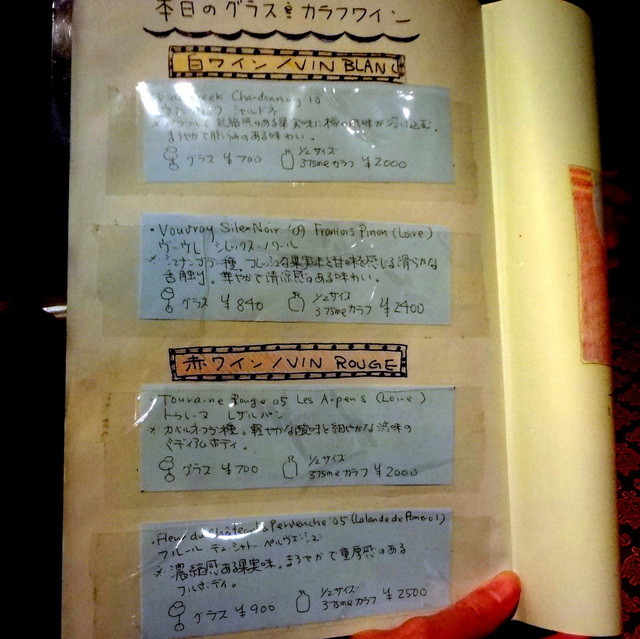 本日のグラス&カラフワイン
白ワイン/VIN BLANC
Creek Chardonnay 10
シャルドネ
果実味に樽の風味が溶け込む。
まろやかで膨らみのある味わい。
グラス ¥700 1/2サイズ 375mlカラフ ¥2000
・Vouvray Silex Noir '09 Francois Pinon (Loire)
ヴーヴレ シレックス・ノワール
※ シュナンブラン種 フレッシュな果実味と甘味を感じる滑らかな
舌触り。華やかで清涼感のある味わい。
グラス ¥840 1/2サイズ 375mlカラフ ¥2400
赤ワイン/VIN ROUGE
Touraine Rouge 05 Les Arpens (Loire)
トゥレーヌ レザルパン
※ カベルネフラン種。軽やかな酸味と細やかな渋味の
ミディアムボディ。
グラス ¥700 1/2サイズ 375mlカラフ ¥2000
・Fleur du Château la Pervenche '05 (Lalande de Pomerol)
フルール デュ・シャトー・ペルヴェンシュ
※ 濃縮感ある果実味。まろやかで重厚感のある
フルボディ。
グラス ¥900 1/2サイズ 375mlカラフ ¥2500